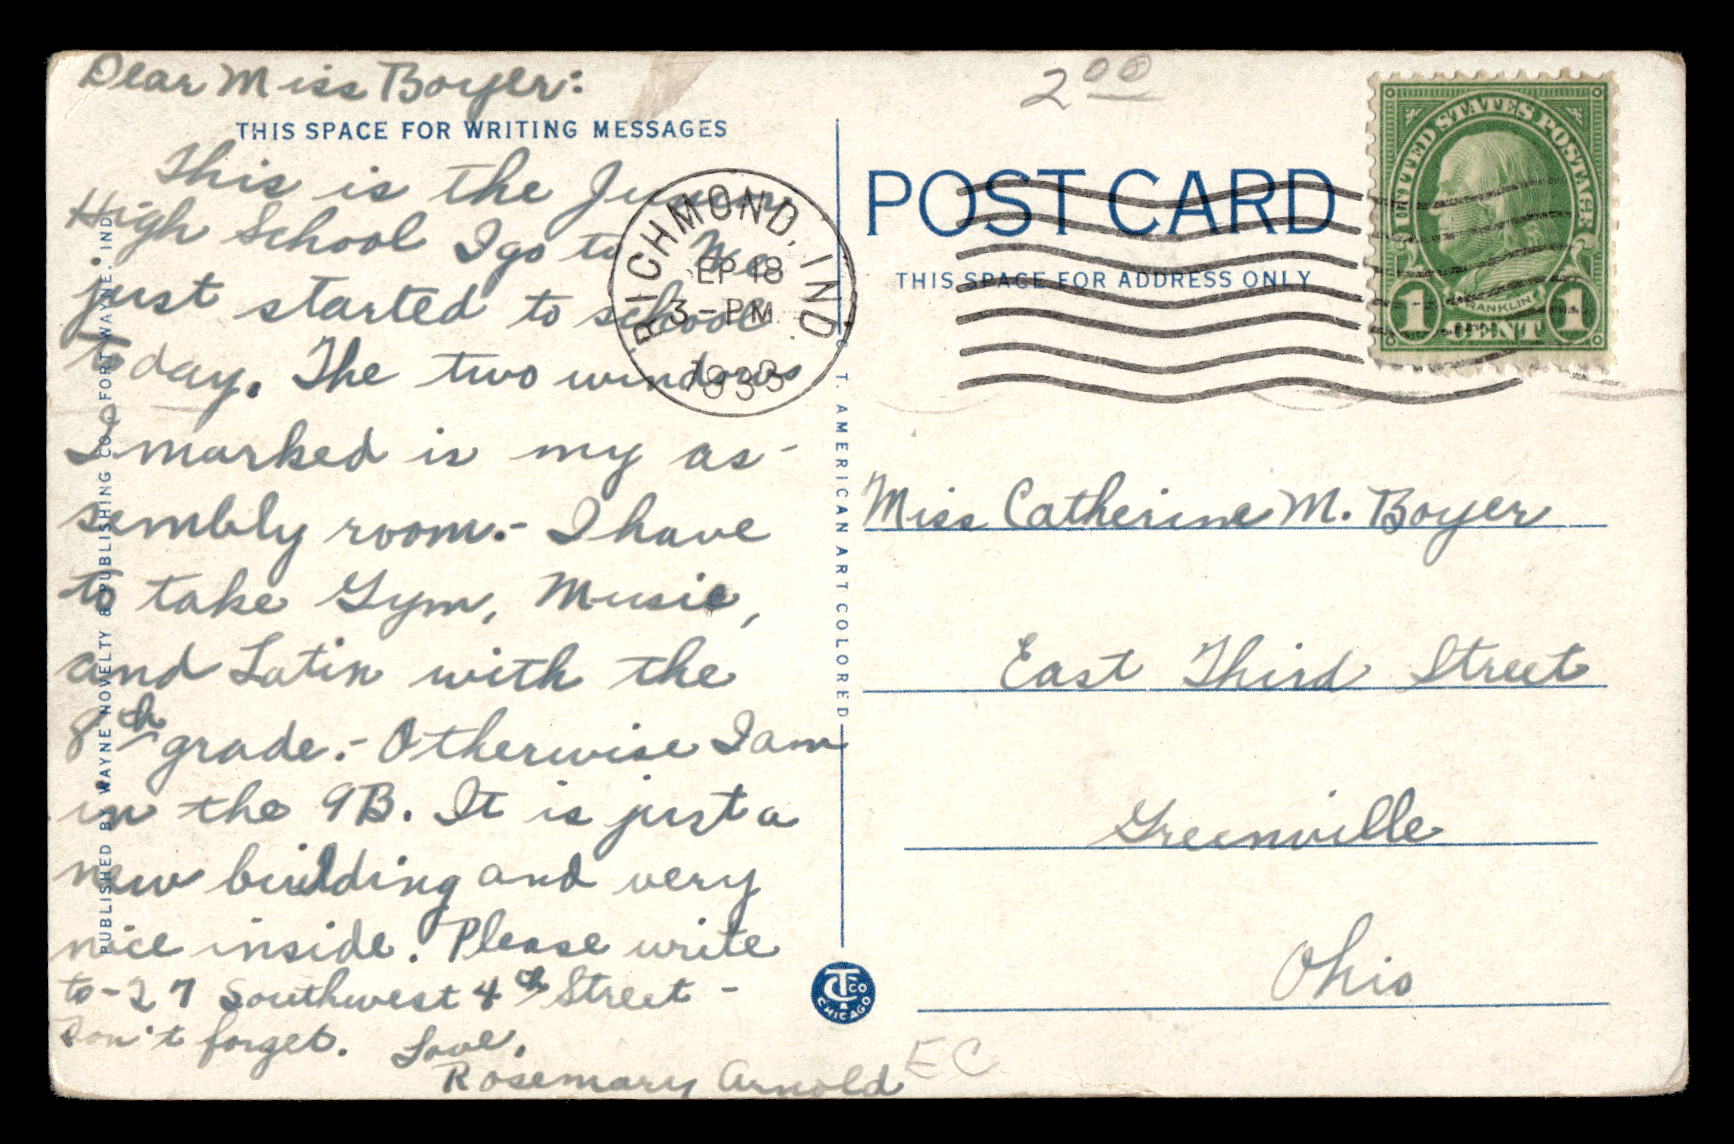 Dear Miss Boyer:
THIS SPACE FOR WRITING MESSAGES
This is the Junior
High School I go to. We
just started to school
today. The two windows
I marked is my as-
sembly room.- I have
to take Gym, Music,
and Latin with the
8th grade.- Otherwise I am
in the 9B. It is just a
new building and very
nice inside. Please write
to - 27 Southwest 4th Street -
Don't forget. Love,
Rosemary Arnold
PUBLISHED BY WAYNE NOVELTY & PUBLISHING CO., FORT WAYNE, IND.
RICHMOND, IND.
SEP 18
3-PM
1933
C. T. AMERICAN ART COLORED
CT CO
CHICAGO
2 00
POST CARD
THIS SPACE FOR ADDRESS ONLY
UNITED STATES POSTAGE
FRANKLIN
1 CENT 1
Miss Catherine M. Boyer
East Third Street
Greenville
Ohio
EC